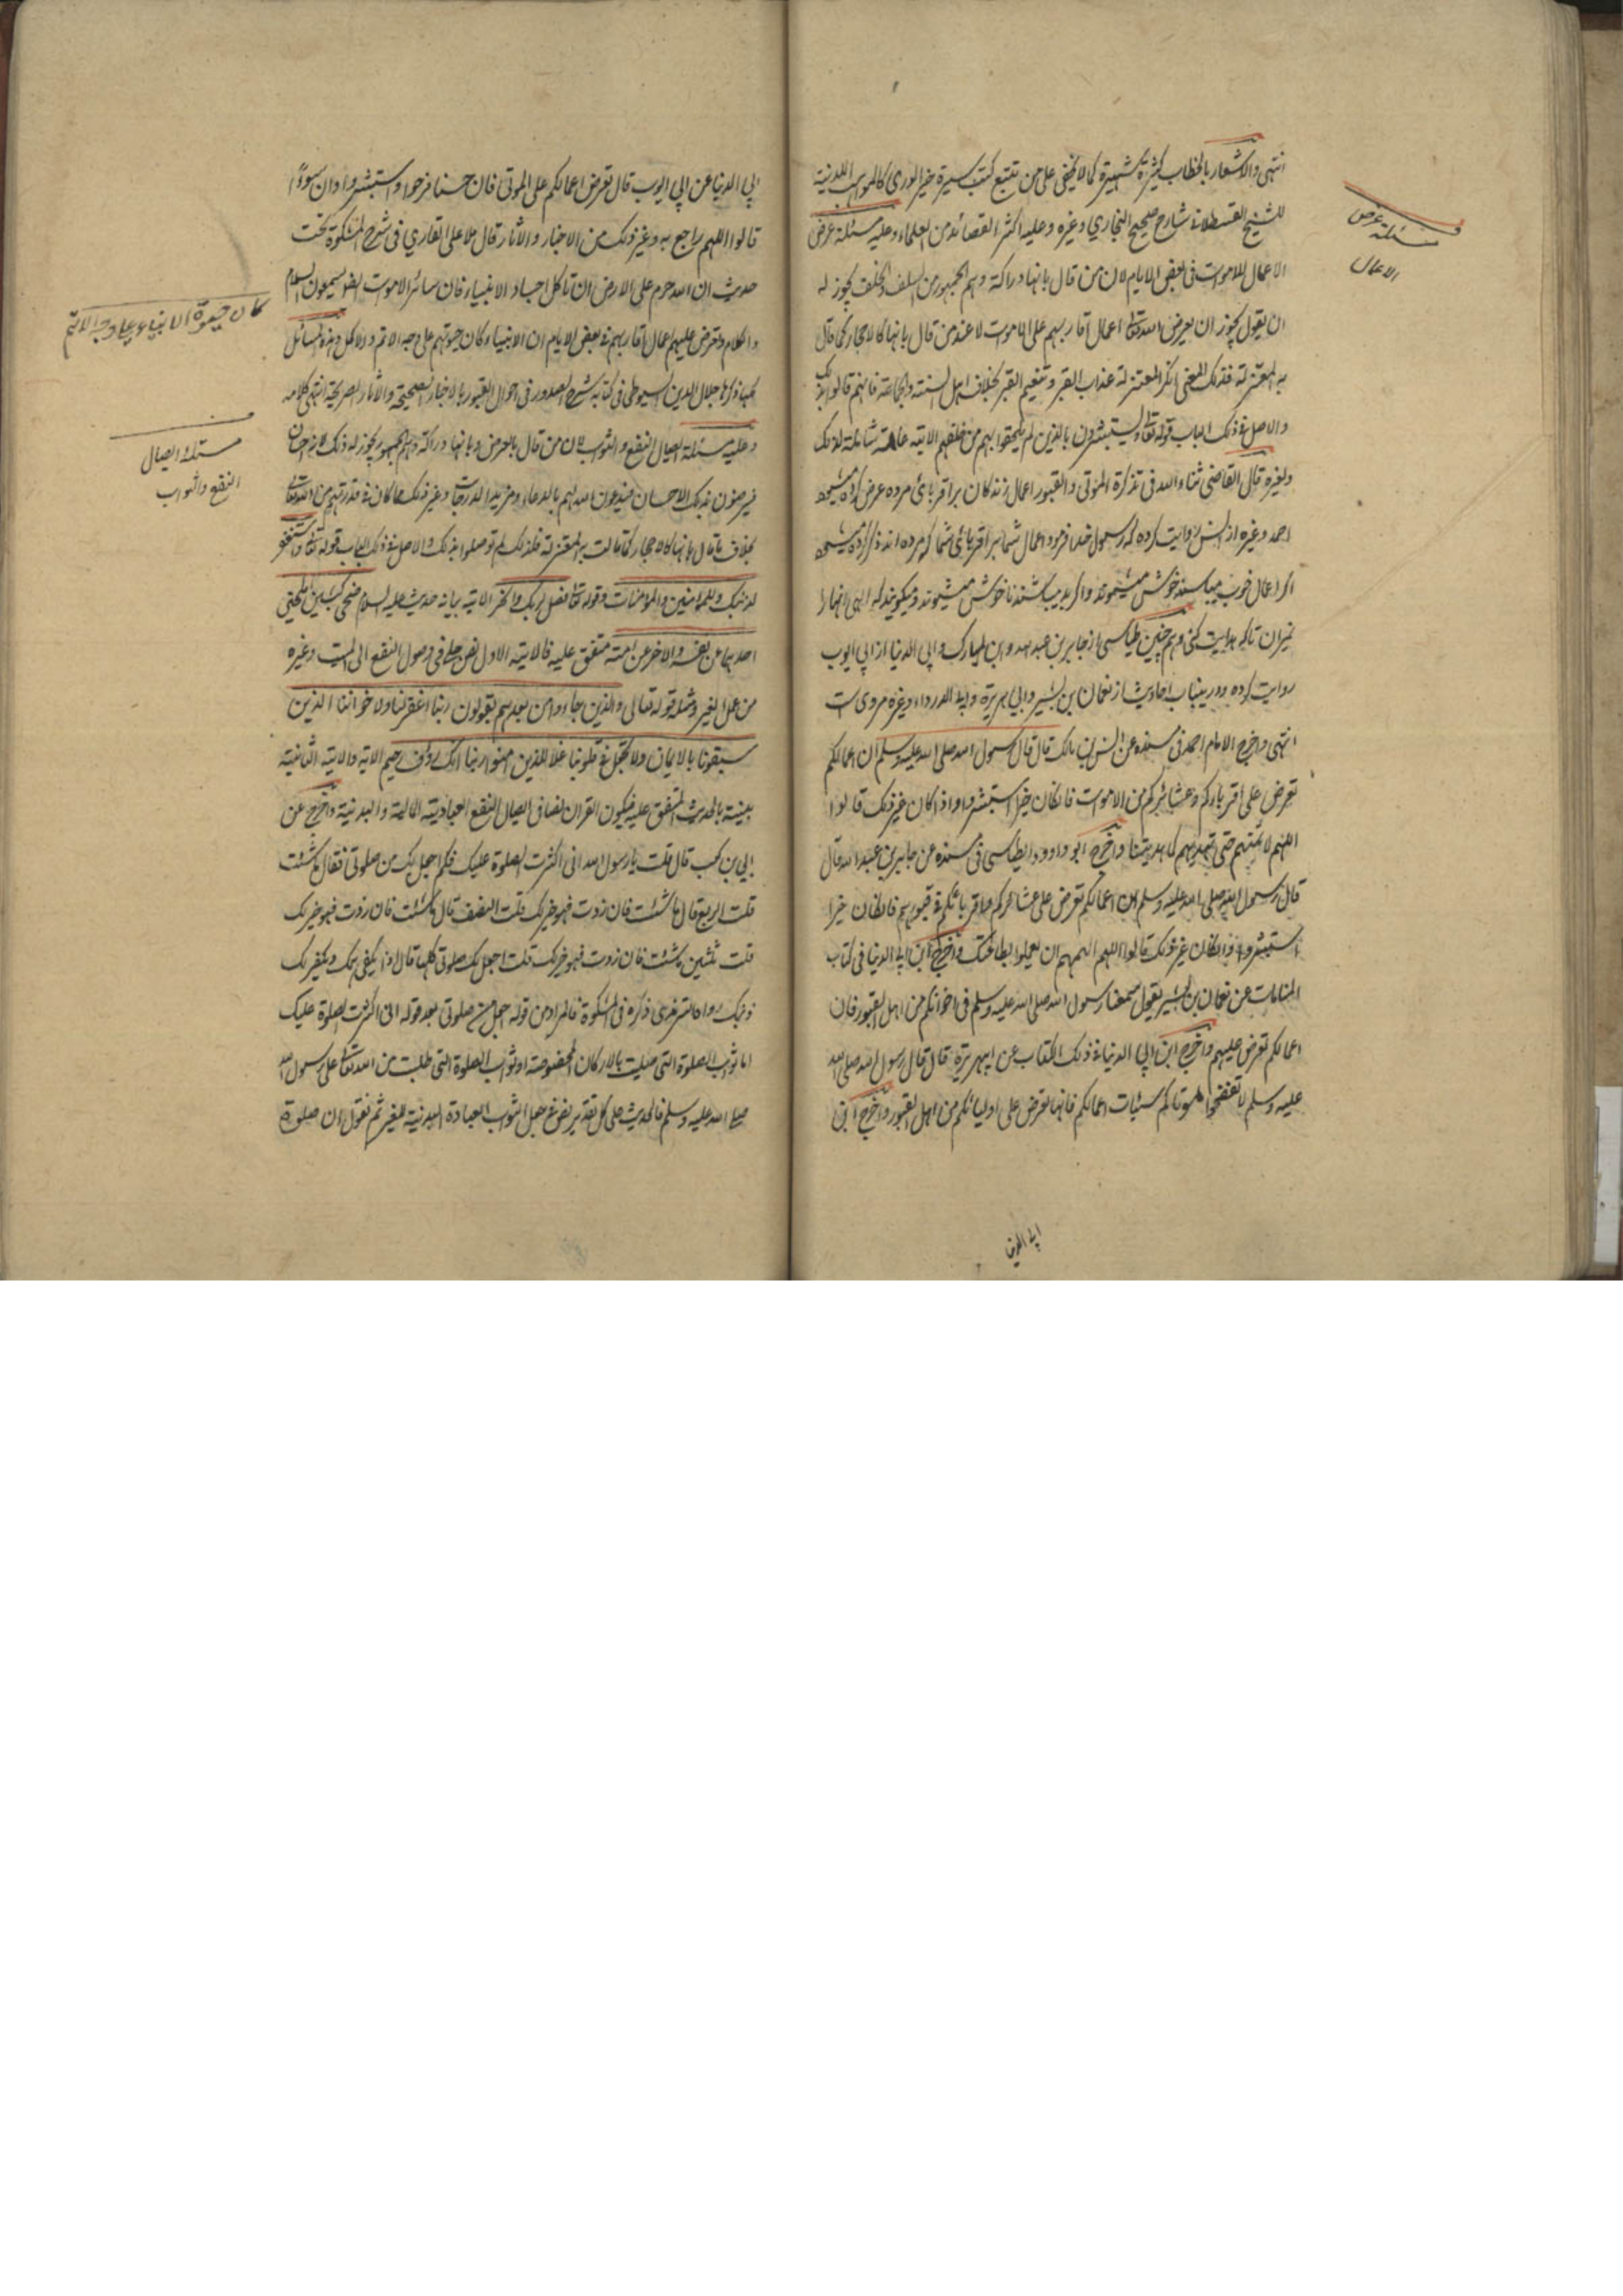 انتهى والاشعار بالخطاب كثيرة شهيرة كما لا يخفى على من تتبع كتب سيرة خير الورى كالمواهب اللدنية
للشيخ القسطلاني شارح صحيح البخاري وغيره وعليه اكثر القصائد من العلماء وعليه مسئلة عرض
الاعمال للاموات في بعض الايام لان من قال بانها دراكة وهم الجمهور من السلف والخلف يجوز له
ان يقول يجوز ان يعرض الله تعالى اعمال اقاربهم على الاموات لا عند من قال بانها كالاحجار كما قال
به المعتزلة فلذلك المعنى انكر المعتزلة عذاب القبر وتنعيم القبر بخلاف اهل السنة والجماعة فانهم قالوا بذلك
والاصل في ذلك الباب قوله تعالى ويستبشرون بالذين لم يلحقوا بهم من خلفهم الاية عامة شاملة لذلك
ولغيره قال القاضي ثناء الله في تذكرة الموتى والقبور اعمال زندكان بر اقرباى مرده عرض كرده ميشود
احمد وغيره از انس روايت كرده كه رسول خدا فرمود اعمال شما بر اقرباى شما كه مرده اند ذكر كرده ميشود
اكر اعمال خوب ميباشند خوش ميشوند واكر بد ميباشند ناخوش ميشوند وميكويند كه الهى انها را
نميران تاكه هدايت كنى وهم چنين طيالسى از جابر بن عبد الله وابن المبارك وابى الدنيا از ابى ايوب
روايت كرده ودرين باب احاديث از نعمان بن بشير وابى هريرة وابى الدرداء وغيره مروى ست
انتهى واخرج الامام احمد في مسنده عن انس بن مالك قال قال رسول الله صلى الله عليه وسلم ان اعمالكم
تعرض على اقرباءكم وعشائركم من الاموات فان كان خيرا استبشروا واذا كان غير ذلك قالوا
اللهم لا تمتهم حتى تهديهم كما هديتنا واخرج ابو داود الطيالسى في مسنده عن جابر بن عبد الله قال
قال رسول الله صلى الله عليه وسلم ان اعمالكم تعرض على عشائركم واقربائكم في قبورهم فان كان خيرا
استبشروا وان كان غير ذلك قالوا اللهم الهمهم ان يعملوا بطاعتك واخرج ابن ابي الدنيا في كتاب
المنامات عن نعمان بن بشير يقول سمعنا رسول الله صلى الله عليه وسلم في اخوانكم من اهل القبور فان
اعمالكم تعرض عليهم واخرج ابن ابي الدنيا في ذلك الكتاب عن ابيهريرة قال قال رسول الله صلى الله
عليه وسلم لا تفضحوا موتاكم سيئات اعمالكم فانها تعرض على اوليائكم من اهل القبور واخرج ابن
ابي الدنيا
مسئلة عرض
الاعمال
ابي الدنيا عن ابي ايوب قال تعرض اعمالكم على الموتى فان حسنا فرحوا واستبشروا وان سوءًا
قالوا اللهم راجع به وغير ذلك من الاخبار والاثار قال ملا على القاري في شرح المشكوة تحت
حديث ان الله حرم على الارض ان تأكل اجساد الانبياء فان سائر الاموات ايضا يسمعون السلام
والكلام وتعرض عليهم اعمال اقاربهم في بعض الايام ان الانبياء كان حيوتهم على وجه الاتم والاكمل وهذه المسائل
كلها ذكرها جلال الدين السيوطى في كتابه شرح الصدور في احوال القبور بالاخبار الصحيحة والاثار الصريحة انتهى كلامه
وعليه مسئلة ايصال النفع والثواب لان من قال بالعرض وبانها دراكة وهم الجمهور يجوز له ذلك لانه احسان
فيرضون بذلك الاحسان فيدعون الله لهم بالدعاء ومزيد الدرجات وغير ذلك مما كان في قدرتهم من الله تعالى
بخلاف ما قال بانها كالاحجار كما قالت به المعتزلة فلذلك لم توصلوا بذلك والاصل في ذلك الباب قوله تعالى واستغفر
لذنبك وللمؤمنين والمؤمنات وقوله تعالى فصل لربك وانحر الاية بيانه حديث عليه السلام ضحى كبشين املحين
احدهما عن نفسه والاخر عن امته متفق عليه فالاية الاول نص جلي في وصول النفع الى الميت وغيره
من عمل الغير ومثله قوله تعالى والذين جاءوا من بعدهم يقولون ربنا اغفر لنا ولاخواننا الذين
سبقونا بالايمان ولا تجعل في قلوبنا غلا للذين امنوا ربنا انك رؤف رحيم الاية والاية الثانية
بينته بالحديث المتفق عليه فيكون القران نصا في ايصال النفع العبادية المالية والبدنية واخرج عن
ابي بن كعب قال قلت يا رسول الله اني اكثرت الصلوة عليك فكم اجعل لك من صلوتي فقال ما شئت
قلت الربع قال ما شئت فان زدت فهو خير لك قلت النصف قال ما شئت فان زدت فهو خير لك
قلت ثلثين ما شئت فان زدت فهو خير لك قلت اجعل لك صلوتي كلها قال اذا يكفى همك ويكفر لك
ذنبك رواه الترمذي ذكره في المشكوة فالمراد من قوله اجعل من صلوتي بعد قوله اني اكثرت الصلوة عليك
اما ثواب الصلوة التي صليت بالاركان المخصوصة او ثواب الصلوة التي طلبت من الله تعالى على رسول الله
صلى الله عليه وسلم فالحديث على كل تقدير نص في جعل الثواب العبادة البدنية للغير ثم نقول ان صلوة
كان حيوة الانبياء على وجه الاتم
مسئلة ايصال
النفع والثواب